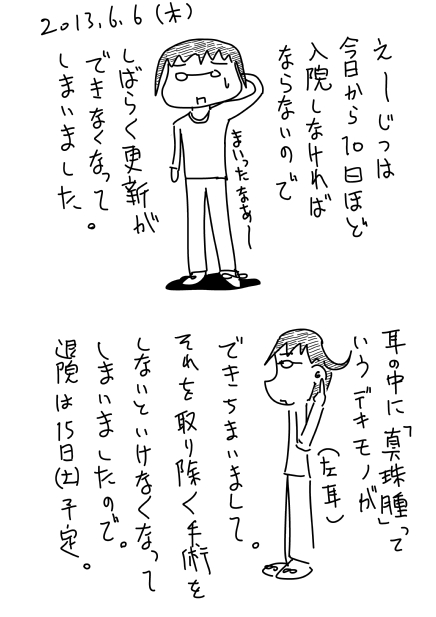 2013.6.6(木)
えーじつは
今日から10日ほど
入院しなければ
ならないので
まいったなあー
しばらく更新が
できなくなって
しまいました。
耳の中に「真珠腫」って
いうデキモノが
(左耳)
できちまいまして。
それを取り除く手術を
しないといけなくなって
しまいましたので。
退院は15日(土)予定。